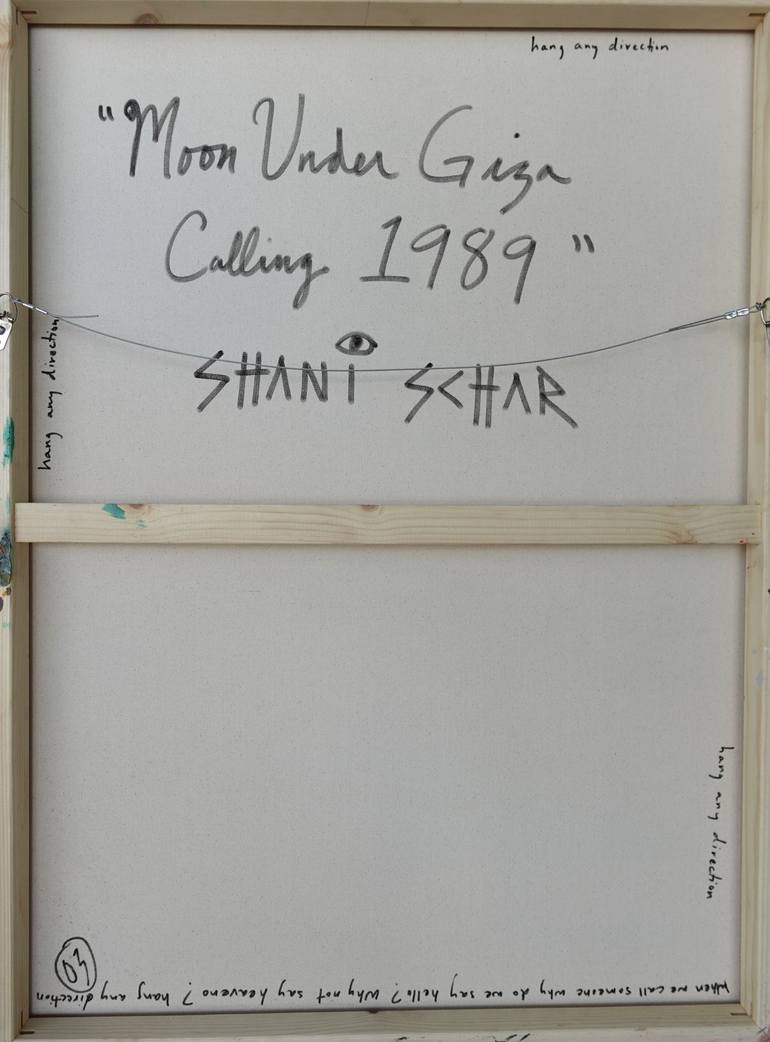 hang any direction
"Moon Under Giza
Calling 1989"
SHANI SCHAR
hang any direction
hang any direction
03
When we call someone why do we say hello? Why not say heaveno? hang any direction